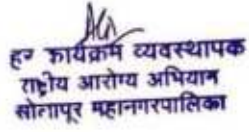 हर कार्यक्रम व्यवस्थापक
राष्ट्रीय आरोग्य अभियान
सोलापूर महानगरपालिका